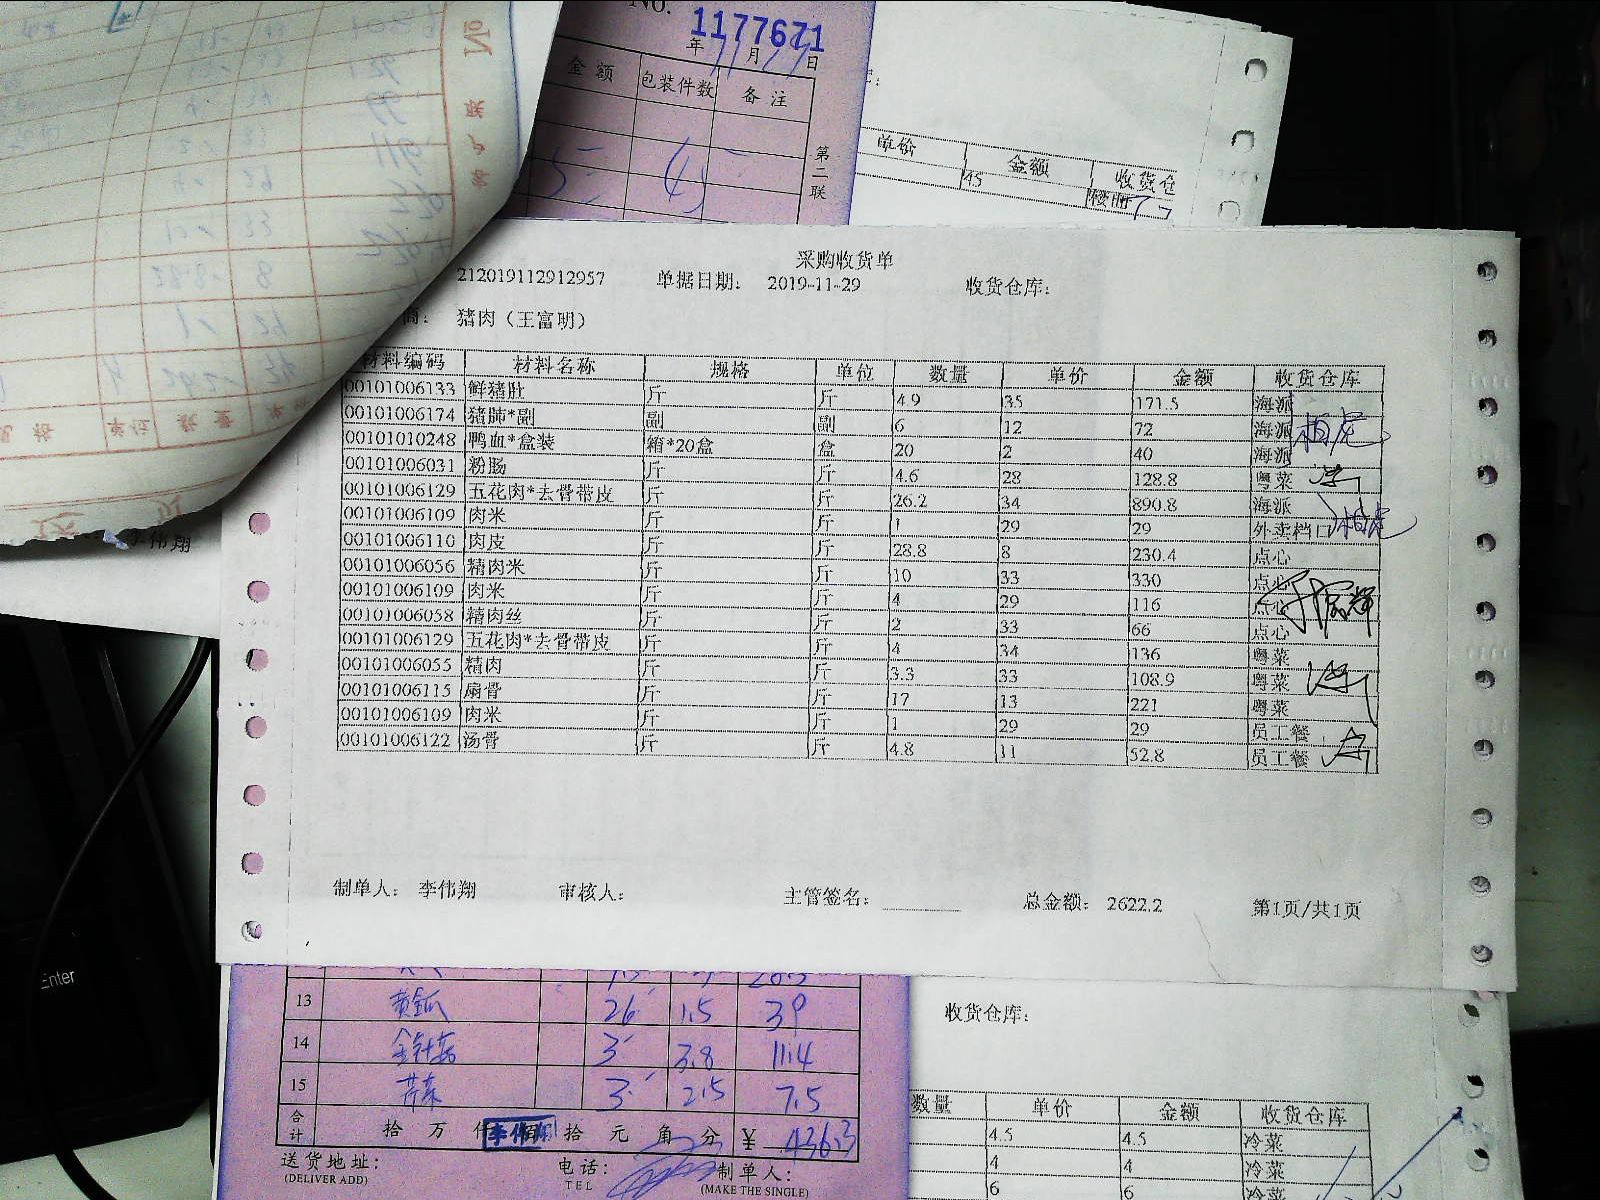 No
No. 1177671
年 月 日
金额 包装件数 备注
第二联
单价 金额 收货仓
45
采购收货单
212019112912957 单据日期: 2019-11-29 收货仓库:
商: 猪肉(王富明)
材料编码 材料名称 规格 单位 数量 单价 金额 收货仓库
00101006133 鲜猪肚 斤 斤 4.9 35 171.5 海派
00101006174 猪肺*副 副 副 6 12 72 海派
00101010248 鸭血*盒装 箱*20盒 盒 20 2 40 海派
00101006031 粉肠 斤 斤 4.6 28 128.8 粤菜
00101006129 五花肉*去骨带皮 斤 斤 26.2 34 890.8 海派
00101006109 肉米 斤 斤 1 29 29 外卖档口
00101006110 肉皮 斤 斤 28.8 8 230.4 点心
00101006056 精肉米 斤 斤 10 33 330 点心
00101006109 肉米 斤 斤 4 29 116 点心
00101006058 精肉丝 斤 斤 2 33 66 点心
00101006129 五花肉*去骨带皮 斤 斤 4 34 136 粤菜
00101006055 精肉 斤 斤 3.3 33 108.9 粤菜
00101006115 扇骨 斤 斤 17 13 221 粤菜
00101006109 肉米 斤 斤 1 29 29 员工餐
00101006122 汤骨 斤 斤 4.8 11 52.8 员工餐
制单人: 李伟翔 审核人: 主管签名: 总金额: 2622.2 第1页/共1页
李伟翔
13 黄金瓜 26 1.5 39
14 金针菇 3 3.8 11.4
15 芹菜 3 2.5 7.5
合计 拾 万 仟 佰 拾 元 角 分 ¥ 436.3
送货地址: 电话: 制单人:
(DELIVER ADD) TEL (MAKE THE SINGLE)
收货仓库:
数量 单价 金额 收货仓库
4.5 4.5 冷菜
4 4 冷菜
6 6 冷菜
Enter